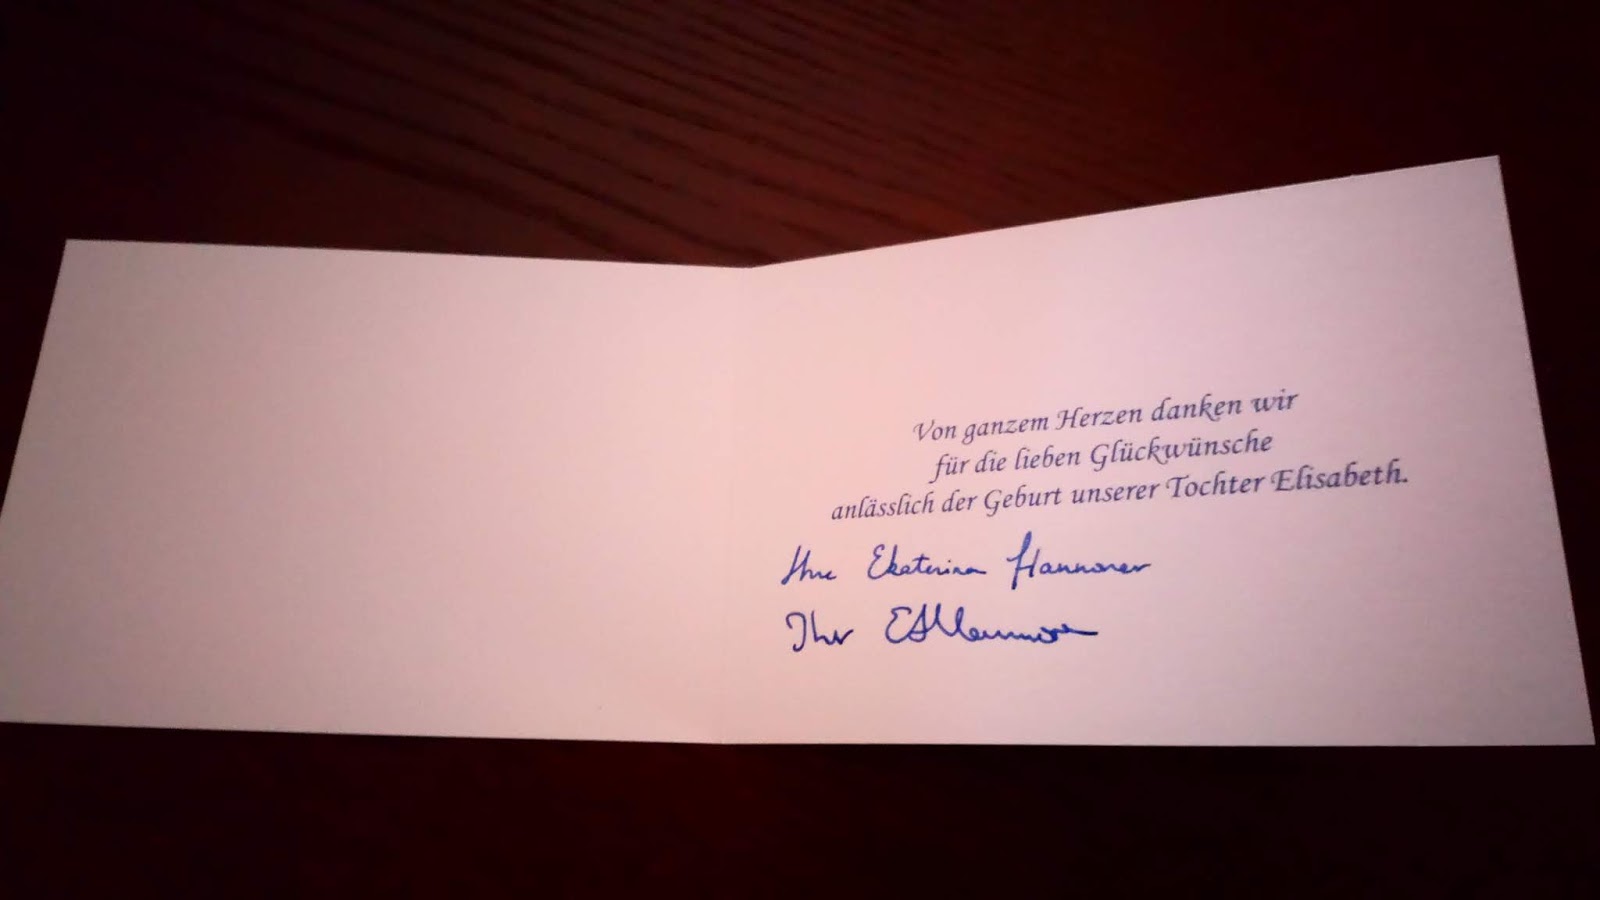 Von ganzem Herzen danken wir
für die lieben Glückwünsche
anlässlich der Geburt unserer Tochter Elisabeth.
Ihre Ekaterina Hannover
Ihr